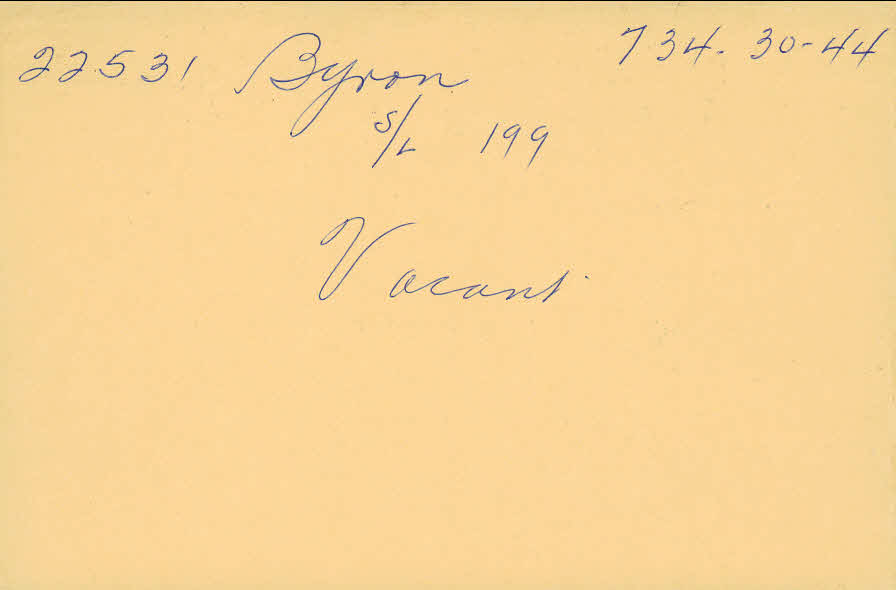 22531 Byron 734-30-44
S/L 199
Vacant